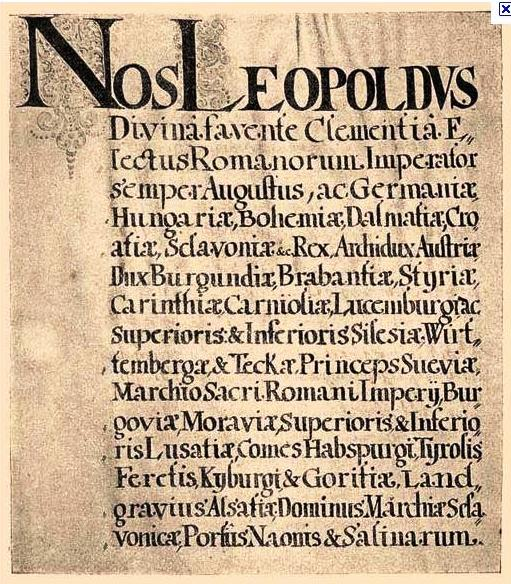 NOS LEOPOLDVS
Divinâ favente Clementiâ. E„
lectus Romanorum Imperator
semper Augustus, ac Germaniæ,
Hungariæ, Bohemiæ, Dalmatiæ, Cro
atiæ, Sclavoniæ &c. Rex, Archidux Austriæ
Dux Burgundiæ, Brabantiæ, Styriæ,
Carinthiæ, Carnioliæ, Lucemburgi, ac
superioris & Inferioris Silesiæ, Wirt„
tembergæ, & Teckæ, Princeps Sueviæ,
Marchio Sacri Romani Imperij, Bur„
goviæ, Moraviæ, Superioris & Inferio
ris Lusatiæ, Comes Habspurgi, Tyrolis
Feretis, Kyburgi & Goritiæ, Land„
gravius Alsatiæ, Dominus Marchiæ Scla
vonicæ, Portus Naonis & Salinarum.